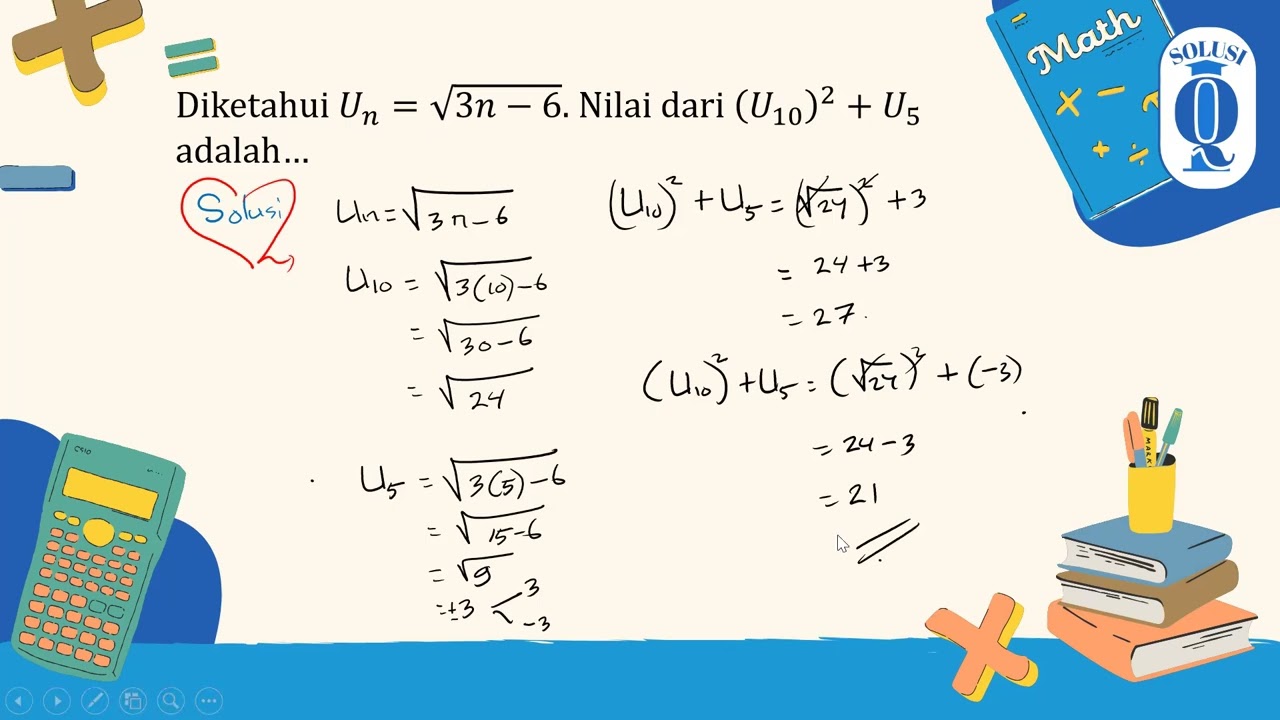 Diketahui Uₙ = √(3n − 6). Nilai dari (U₁₀)² + U₅
adalah…
Solusi
Un = √(3n − 6)
U₁₀ = √(3(10) − 6)
= √(30 − 6)
= √24
U₅ = √(3(5) − 6)
= √(15 − 6)
= √9
= ±3 < 3
−3
(U₁₀)² + U₅ = (√24)² + 3
= 24 + 3
= 27.
(U₁₀)² + U₅ = (√24)² + (−3)
= 24 − 3
= 21
Math
SOLUSI
Q